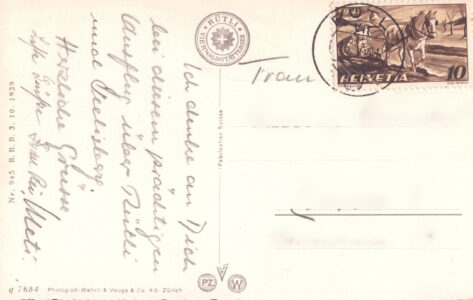 Ich denke an Dich
bei diesem prächtigen
Ausflug über Rütli
und Seelisberg.
Herzliche Grüsse
Mueti.
Liebe Grüsse
Frau
RÜTLI
VIERWALDSTÄTTERSEE
1941
HELVETIA 10
Fabrication Suisse
Nr. 945 B.R.B. 3. 10. 1939
q 7684 Photoglob-Wehrli & Vouga & Co. AG. Zürich
PZ W